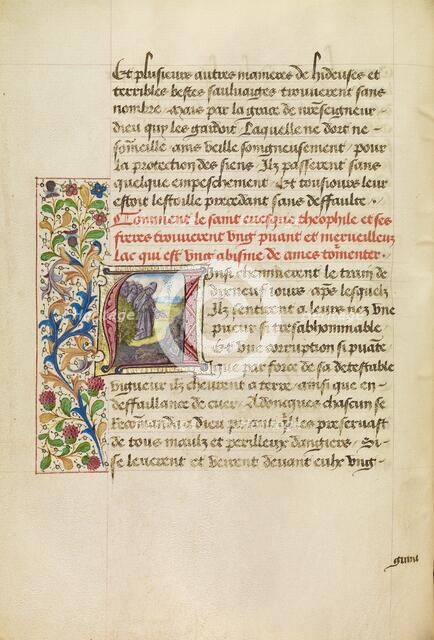 Et plusieurs autres manieres de hideuses et
terribles bestes sauluaiges trouuerent sans
nombre Mais par la grace de nreseigneur
dieu quy les gardoit Laquelle ne dort ne
sommeille ains veille songneusement pour
la protection des siens Ilz passerent sans
quelque empeschement Et tousiours leur
estoit lestoille precedant sans deffaulte.
Comment le saint euesque theophile et ses
freres trouuerent vng puant et merueilleux
lac qui est vng abisme de ames tormenter.
Ainsi cheminerent le train de
dix neuf iours aps lesquelz
Ilz sentirent a leurs nez vne
pueur si tresabhominable
Et vne corruption si puate
que par force de sa detestable
vigueur ilz cheurent a terre ainsi que en
deffaillance de cuer Adoncques chascun se
Recomanda a dieu priant qlles preseruast
de tous maulz et perilleux dangiers Si
se leuerent et veirent deuant eulx vng